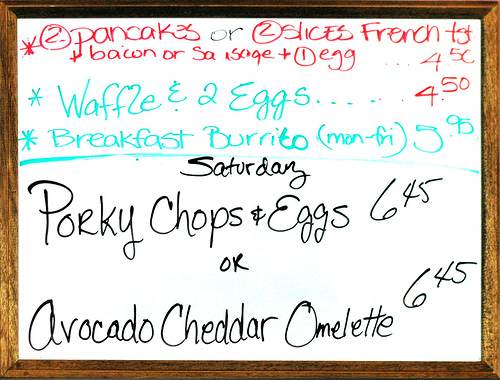 * ② pancakes or ② slices French tst
+ bacon or Sausage + ① egg ... 4.50
* Waffle & 2 Eggs...... 4.50
* Breakfast Burrito (mon-fri) 5.95
Saturday
Porky Chops & Eggs 6.45
OR
Avocado Cheddar Omelette 6.45